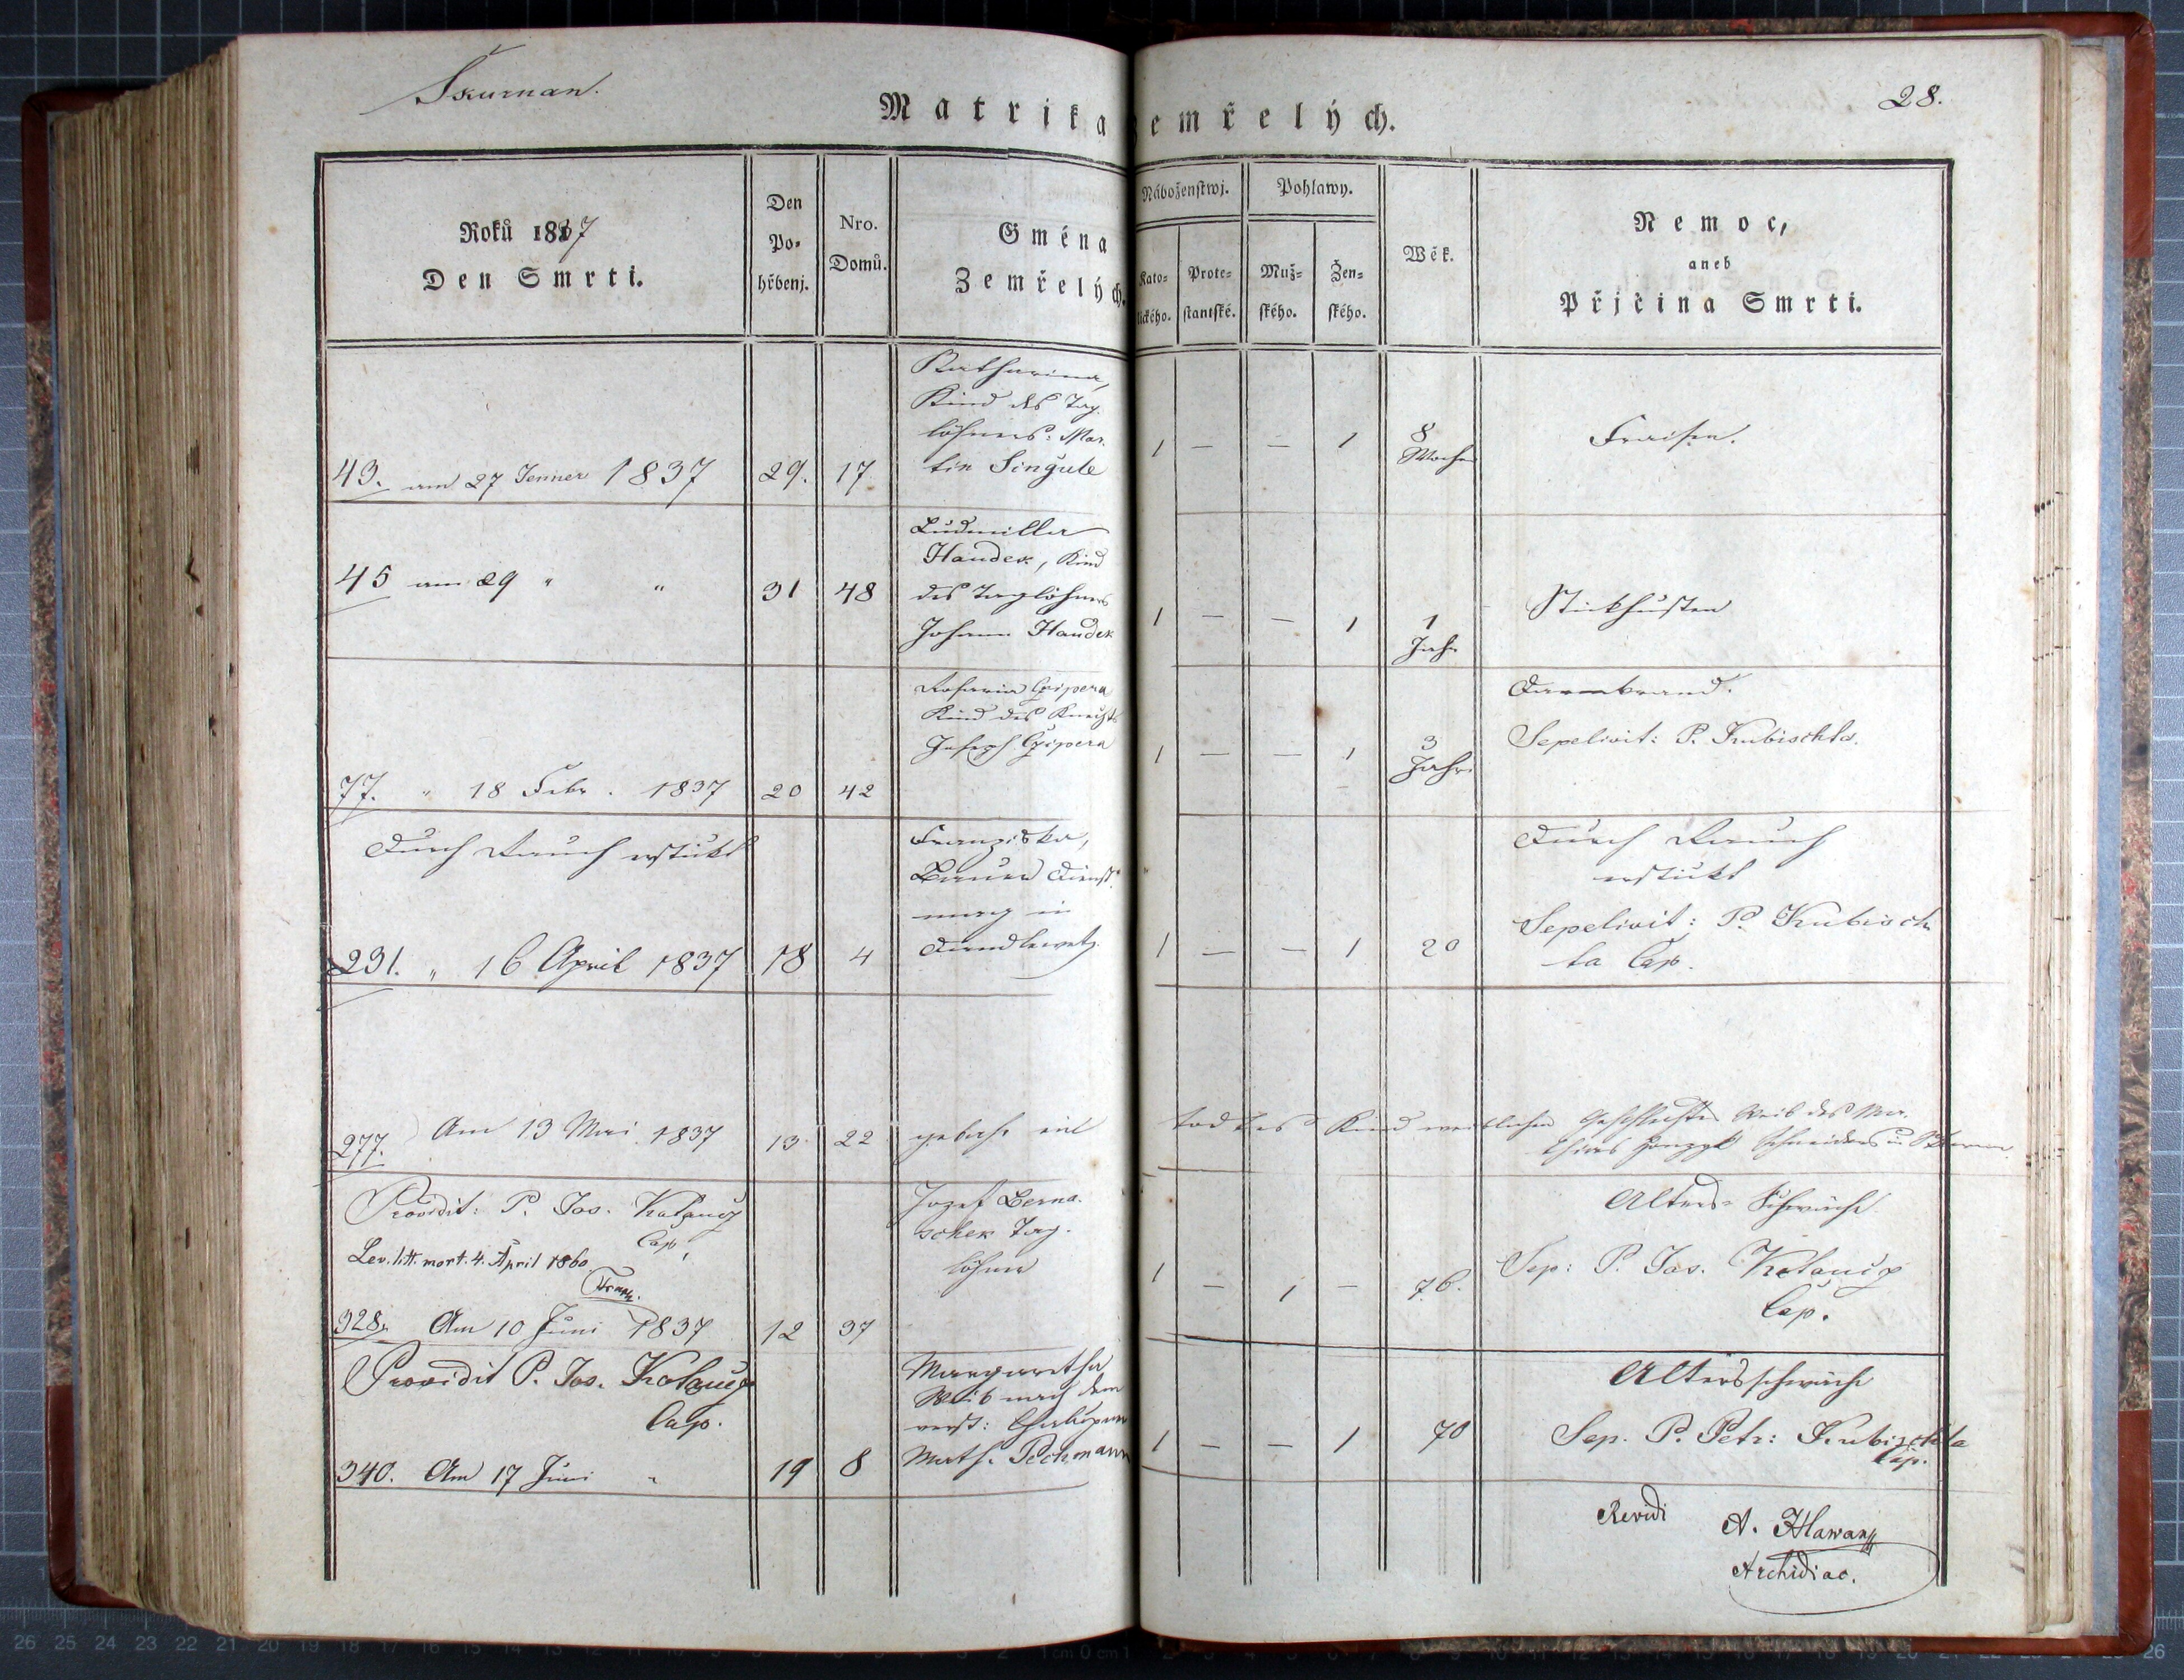 Skurnan.
28.
Matrika zemřelých.
Roků 1837
Den Smrti.
Den
Po=
hřbenj.
Nro.
Domů.
Gména
Zemřelých.
Náboženstwj.
Kato=
lického.
Prote=
stantské.
Pohlawy.
Muž=
ského.
Žen=
ského.
Wěk.
Nemoc,
aneb
Přjčina Smrti.
43. am 27 Jenner 1837
29.
17
Katharina,
Kind des Tag=
löhners: Mar=
tin Singule
1 — — 1
8
Wochen
Fraisen.
45 am 29 " "
31
48
Ludmilla
Hauder, Kind
des Taglöhners
Johann Hauder
1 — — 1
1
Jahr
Stickhusten
77. " 18 Febr. 1837
20
42
Kind des Knechts
Joseph
1 — — 1
3
Jahr
Darmbrand.
Sepelivit: P. Kubischta.
Durch Rauch erstickt
231. " 16 April 1837
18
4
Franziska,
Bauer Dienst=
magd in
1 — — 1
20
Durch Rauch
erstickt
Sepelivit: P. Kubisch
ta Cap.
277. Am 13 Mai 1837
13
22
gebahr ein todtes Kind weiblichen Geschlechtes Weib des Ma=
thias Schneiders in
Providit: P. Jos. Kolauč
Cap.
Lev. litt. mort. 4. April 1860.
328. Am 10 Juni 1837
12
37
Josef Berna=
schek Tag=
löhner
1 — 1 —
76.
Alters=Schwäche
Sep: P. Jos. Kolauč
Cap.
Providit P. Jos. Kolauč
Cap.
340. Am 17 Juni "
19
8
Margaretha
Weib nach dem
verst:
Math. Pechmann
1 — — 1
70
Altersschwäche
Sep. P. Petr: Kubischta
Cap.
Revidi A. Hlawan
Archidiac.